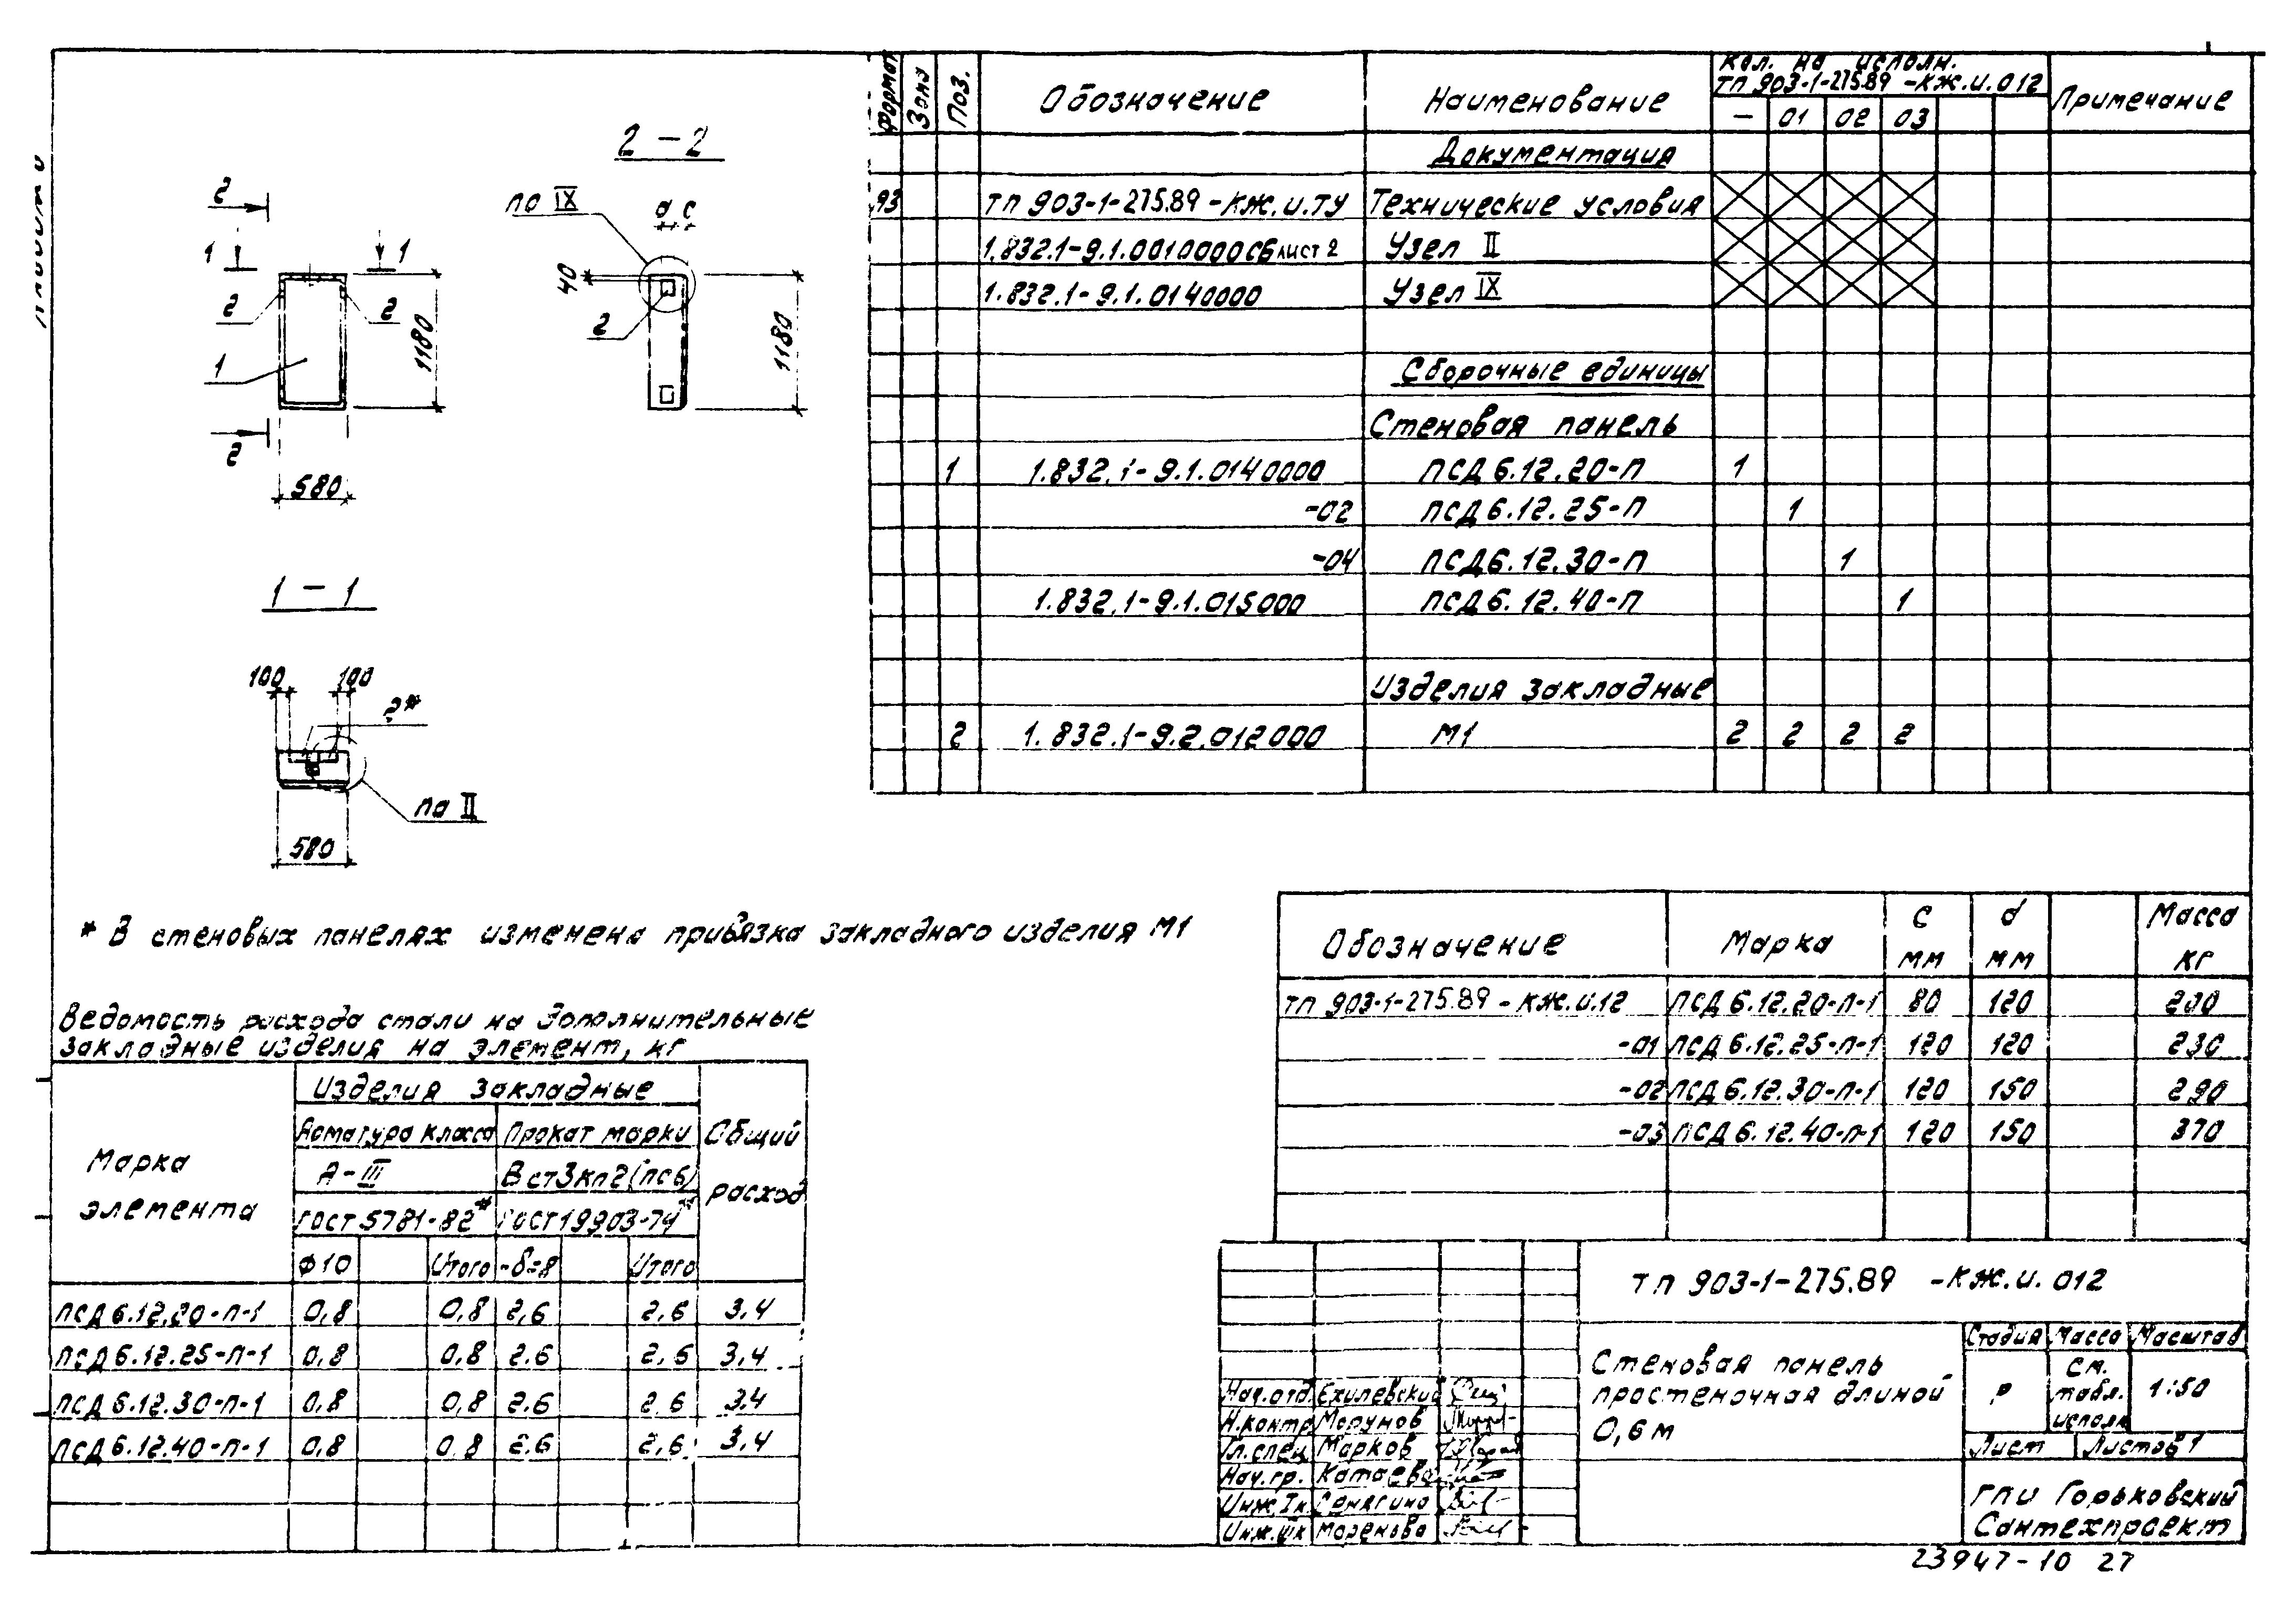 2 - 2
по IX
d c
2
1 1
40
2 2
2
1
1180
1180
2
580
1 - 1
100 100
2*
по II
580
Формат Зона Поз. Обозначение Наименование Кол. на исполн. Примечание
ТП 903-1-275.89 -КЖ.И.012
— 01 02 03
Документация
А3 ТП 903-1-275.89 -КЖ.И.ТУ Технические условия
1.832.1-9.1.0010000СБ лист 2 Узел II
1.832.1-9.1.0140000 Узел IX
Сборочные единицы
Стеновая панель
1 1.832.1-9.1.0140000 ПСД 6.12.20-П 1
-02 ПСД 6.12.25-П 1
-04 ПСД 6.12.30-П 1
1.832.1-9.1.015000 ПСД 6.12.40-П 1
Изделия закладные
2 1.832.1-9.2.012000 М1 2 2 2 2
* В стеновых панелях изменена привязка закладного изделия М1
Ведомость расхода стали на дополнительные
закладные изделия на элемент, кг
Марка элемента Изделия закладные Общий расход
Арматура класса Прокат марки
А-III ВСт3кп2(пс6)
ГОСТ 5781-82* ГОСТ 19903-74*
Ф10 Итого -δ=8 Итого
ПСД 6.12.20-П-1 0,8 0,8 2,6 2,6 3,4
ПСД 6.12.25-П-1 0,8 0,8 2,6 2,6 3,4
ПСД 6.12.30-П-1 0,8 0,8 2,6 2,6 3,4
ПСД 6.12.40-П-1 0,8 0,8 2,6 2,6 3,4
Обозначение Марка С мм d мм Масса кг
ТП 903-1-275.89 - КЖ.И.12 ПСД 6.12.20-П-1 80 120 200
-01 ПСД 6.12.25-П-1 120 120 230
-02 ПСД 6.12.30-П-1 120 150 290
-03 ПСД 6.12.40-П-1 120 150 370
ТП 903-1-275.89 -КЖ.И. 012
Стеновая панель
простеночная длиной
0,6 м
Стадия Масса Масштаб
Р см. табл. исполн 1:50
Лист Листов 1
Нач.отд. Ехилевский
Н.контр. Морунов
Гл.спец. Марков
Нач.гр. Катаева
Инж.Iк Сенягина
Инж.IIк Моренова
ГПИ Горьковский
Сантехпроект
23947-10 27